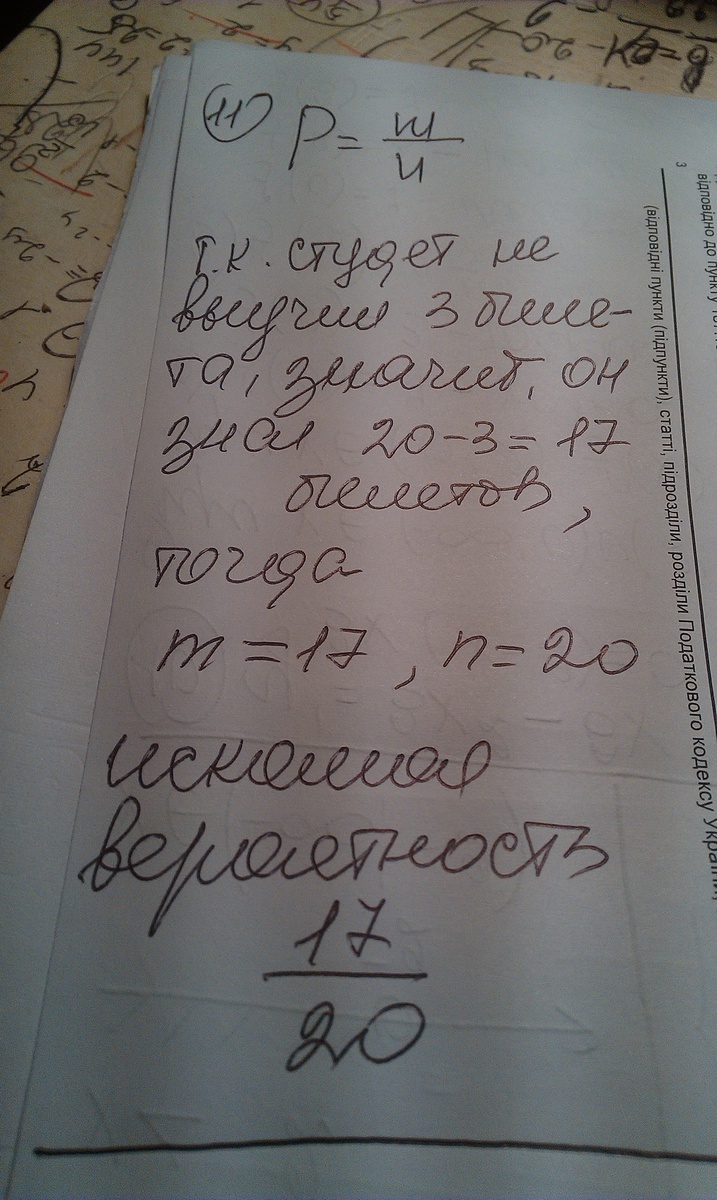 11 P = m/n
т.к. студет не
выучил 3 биле-
та, значит, он
знал 20-3=17
билетов,
тогда
m = 17, n = 20
искомая
вероятность
17
20
3
(відповідні пункти (підпункти), статті, підрозділи, розділи Податкового кодексу України,
відповідно до пункту